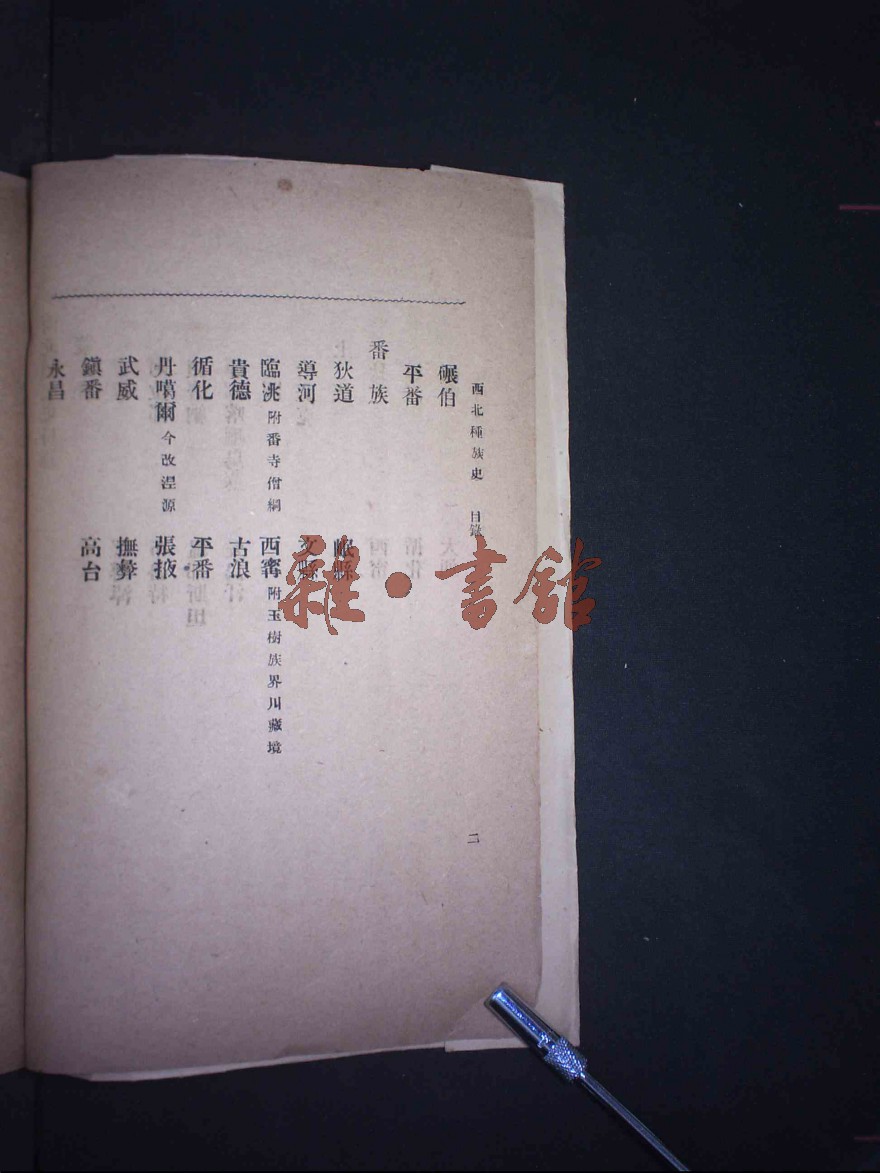 西北種族史 目錄 二
碾伯
平番
番族
狄道 岷縣
導河 文縣
臨洮附番寺僧綱 西寗附玉樹族界川藏境
貴德 古浪
循化 平番
丹噶爾今改湼源 張掖
武威 撫彝
鎭番 高台
永昌
雜·書館